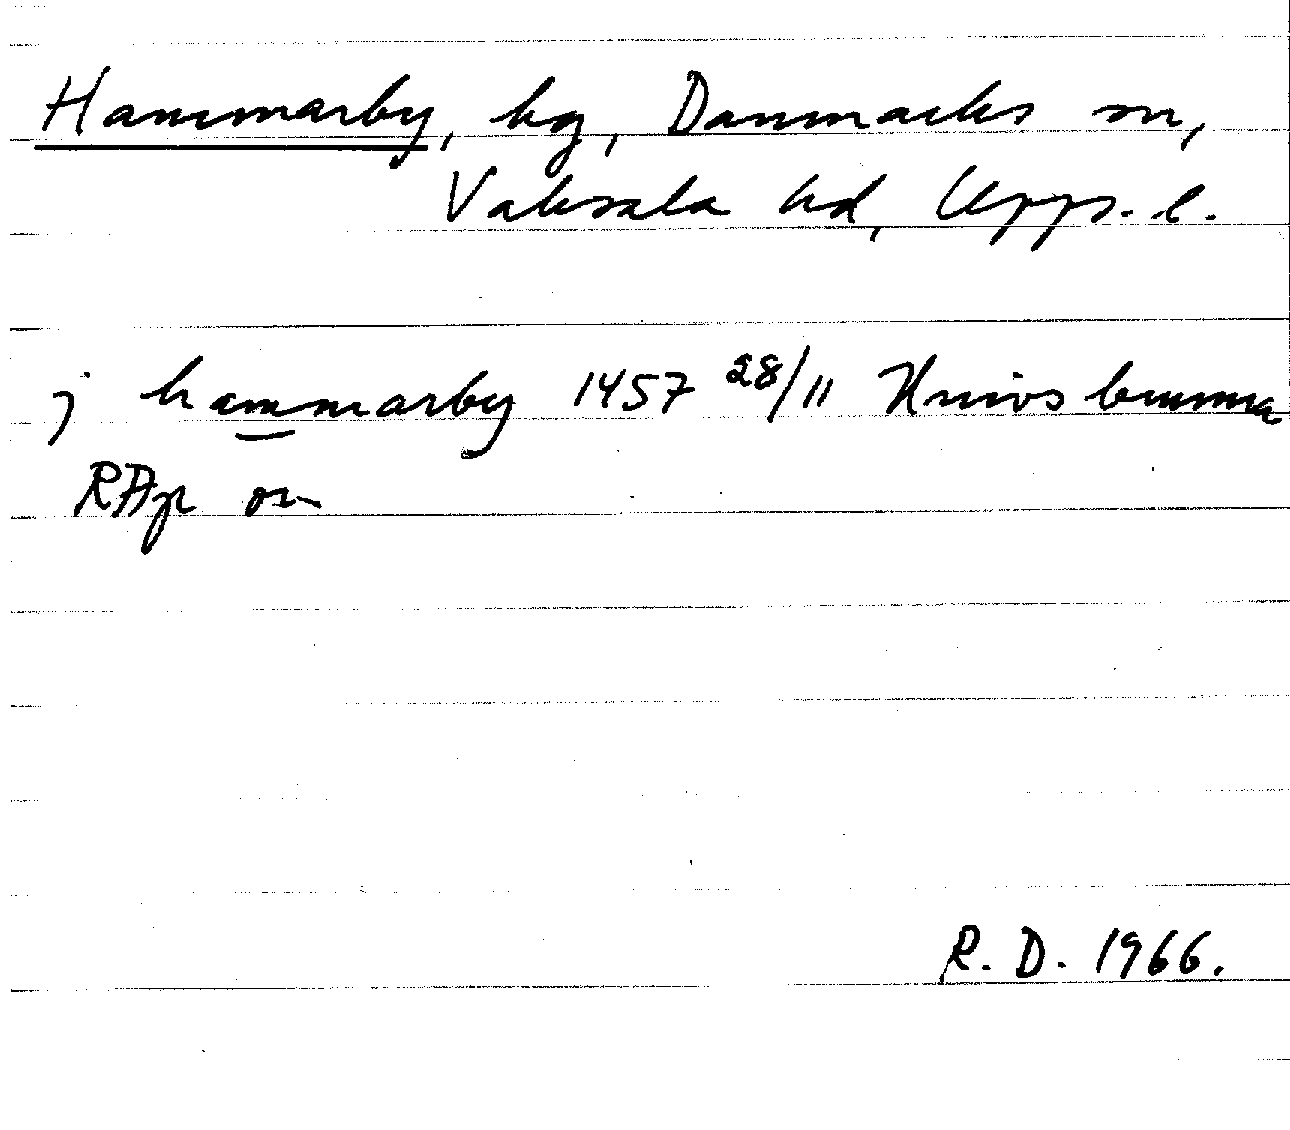 Hammarby, hg, Danmarks sn,
Vaksala hd, Upps. l.
j hammarby 1457 28/11 Knivsbrunna
RAp or
R. D. 1966.